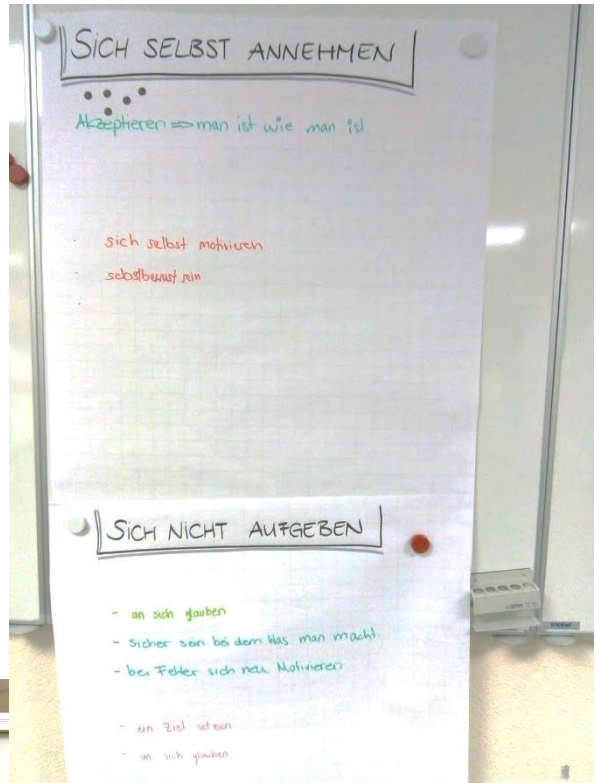 SICH SELBST ANNEHMEN
Akzeptieren ⇒ man ist wie man ist
· sich selbst motivieren
· selbstbewust sein
·
SICH NICHT AUFGEBEN
- an sich glauben
- sicher sein bei dem Was man macht.
- bei Fehler sich neu Motivieren
- ein Ziel setzen
- an sich glauben